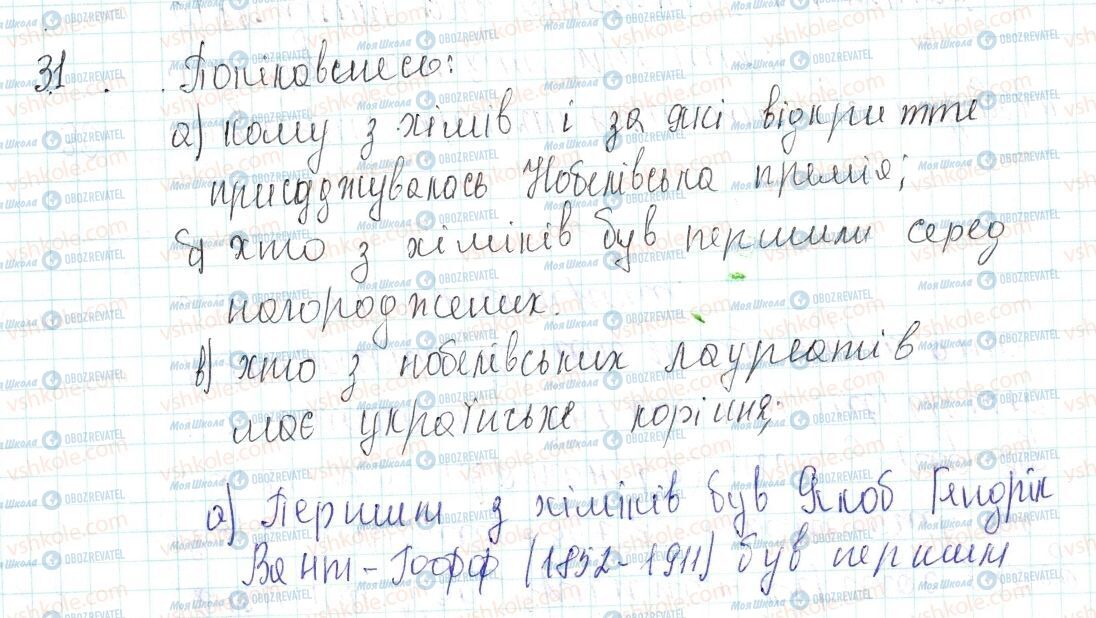 31. Поцікавтесь:
а) кому з хімів і за які відкриття
присуджувалась Нобелівська премія;
б) хто з хіміків був першим серед
нагороджених.
в) хто з нобелівських лауреатів
має українське коріння;
а) Першим з хіміків був Якоб Гендрік
Вант-Гофф (1852-1911) був першим